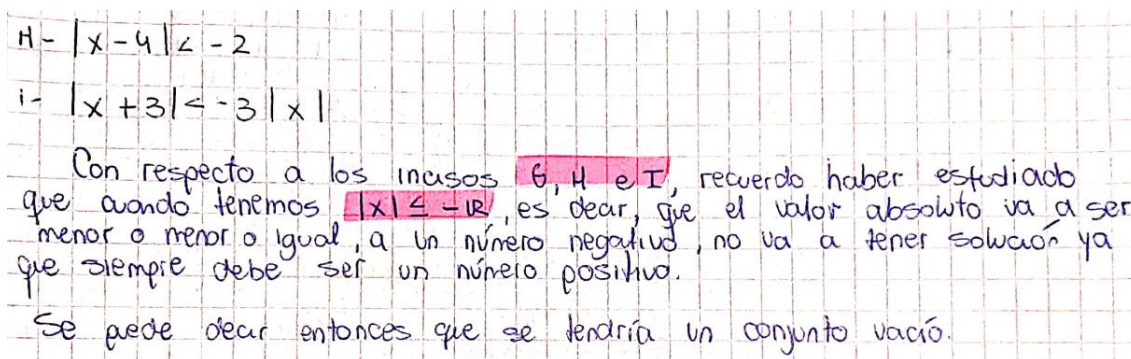 H- |x-4|< -2
i- |x+3|< -3|x|
Con respecto a los incisos G, H e I, recuerdo haber estudiado
que cuando tenemos |x| ≤ -R, es decir, que el valor absoluto va a ser
menor o menor o igual, a un número negativo, no va a tener solución ya
que siempre debe ser un número positivo.
Se puede decir entonces que se tendría un conjunto vacío.